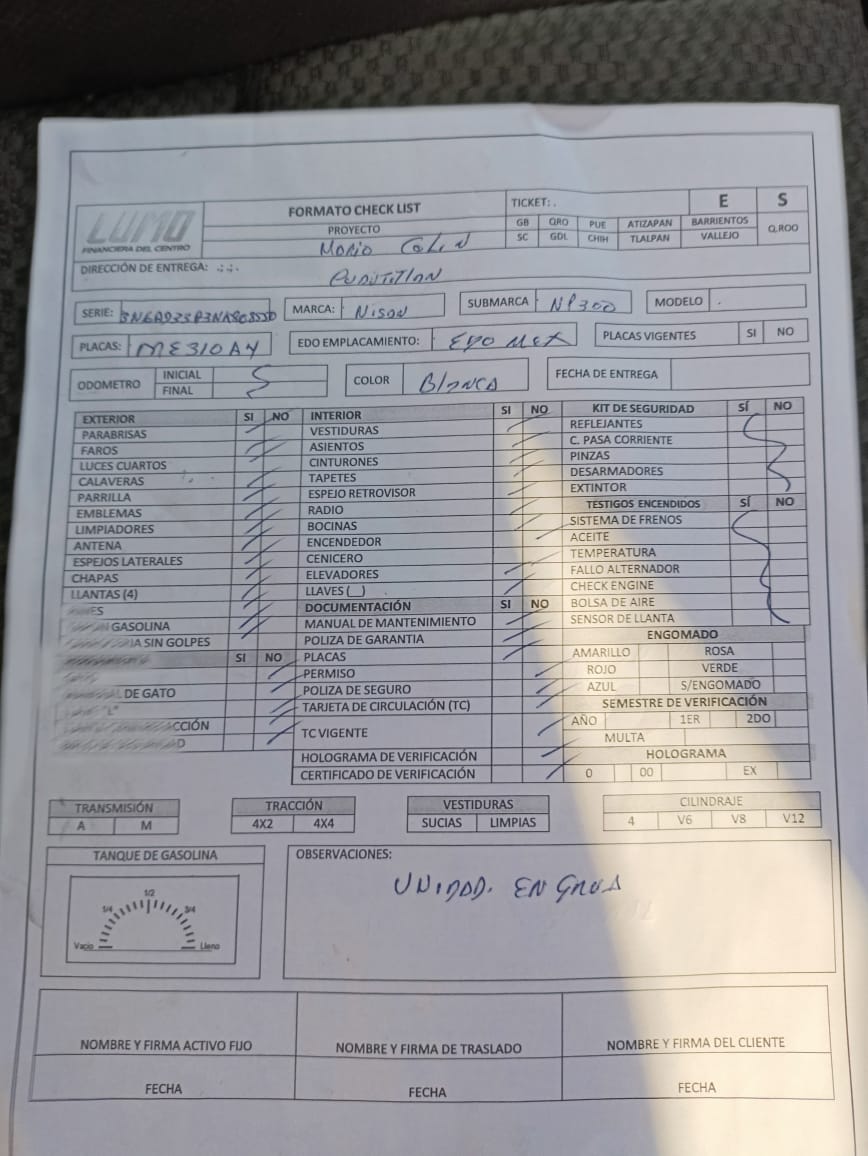 LUMO
FINANCIERA DEL CENTRO
FORMATO CHECK LIST
PROYECTO
Mario Colin
TICKET: .
E S
GB QRO PUE ATIZAPAN BARRIENTOS Q.ROO
SC GDL CHIH TLALPAN VALLEJO
DIRECCIÓN DE ENTREGA: .:.
SERIE:
MARCA: Nisan SUBMARCA NP300 MODELO .
PLACAS: ME310A4 EDO EMPLACAMIENTO: EDO MEX PLACAS VIGENTES SI NO
ODOMETRO INICIAL
FINAL
COLOR Blanca FECHA DE ENTREGA
EXTERIOR SI NO
PARABRISAS
FAROS
LUCES CUARTOS
CALAVERAS
PARRILLA
EMBLEMAS
LIMPIADORES
ANTENA
ESPEJOS LATERALES
CHAPAS
LLANTAS (4)
GASOLINA
SIN GOLPES
SI NO
DE GATO
"L"
CCIÓN
INTERIOR SI NO
VESTIDURAS
ASIENTOS
CINTURONES
TAPETES
ESPEJO RETROVISOR
RADIO
BOCINAS
ENCENDEDOR
CENICERO
ELEVADORES
LLAVES (__)
DOCUMENTACIÓN SI NO
MANUAL DE MANTENIMIENTO
POLIZA DE GARANTIA
PLACAS
PERMISO
POLIZA DE SEGURO
TARJETA DE CIRCULACIÓN (TC)
TC VIGENTE
HOLOGRAMA DE VERIFICACIÓN
CERTIFICADO DE VERIFICACIÓN
KIT DE SEGURIDAD SÍ NO
REFLEJANTES
C. PASA CORRIENTE
PINZAS
DESARMADORES
EXTINTOR
TESTIGOS ENCENDIDOS SÍ NO
SISTEMA DE FRENOS
ACEITE
TEMPERATURA
FALLO ALTERNADOR
CHECK ENGINE
BOLSA DE AIRE
SENSOR DE LLANTA
ENGOMADO
AMARILLO ROSA
ROJO VERDE
AZUL S/ENGOMADO
SEMESTRE DE VERIFICACIÓN
AÑO 1ER 2DO
MULTA
HOLOGRAMA
0 00 EX
TRANSMISIÓN
A M
TRACCIÓN
4X2 4X4
VESTIDURAS
SUCIAS LIMPIAS
CILINDRAJE
4 V6 V8 V12
TANQUE DE GASOLINA
1/2
1/4 3/4
Vacio Lleno
OBSERVACIONES:
UNIDAD. EN GRUA
NOMBRE Y FIRMA ACTIVO FIJO
FECHA
NOMBRE Y FIRMA DE TRASLADO
FECHA
NOMBRE Y FIRMA DEL CLIENTE
FECHA